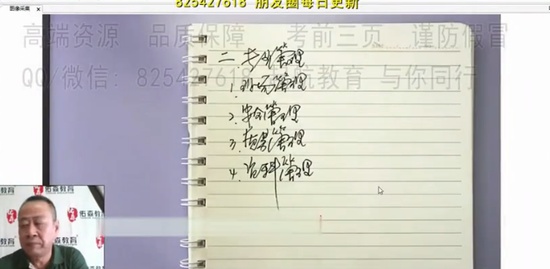 825427618 朋友圈每日更新
高端资源 品质保障 考前三页 谨防假冒
QQ/微信: 825427618 筑教育 与你同行
二、专业管理
1.
2.安全管理
3.质量管理
4.资料管理
佑森教育